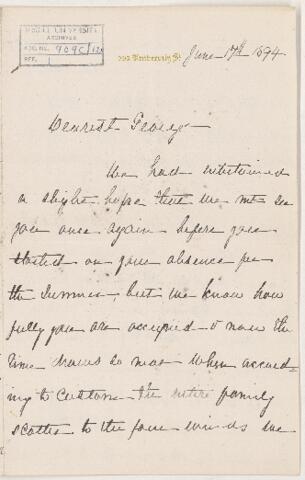 McGILL UNIVERSITY
ARCHIVES
ACC. NO. 909C/
REF.
University St.
June 17th 1894
Dearest Percy
We had entertained
a slight hope that we mt see
you once again before you
started on your absence for
the Summer, but we know how
fully you are occupied & now the
time draws so near when accord-
ing to Custom the entire family
scatter to the four winds we